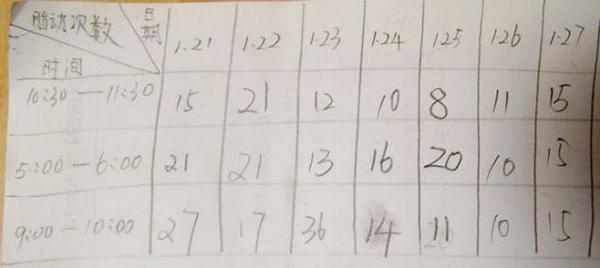 胎动次数 日期 1.21 1.22 1.23 1.24 1.25 1.26 1.27
时间
10:30—11:30 15 21 12 10 8 11 15
5:00—6:00 21 21 13 16 20 10 15
9:00—10:00 27 17 36 14 11 10 15